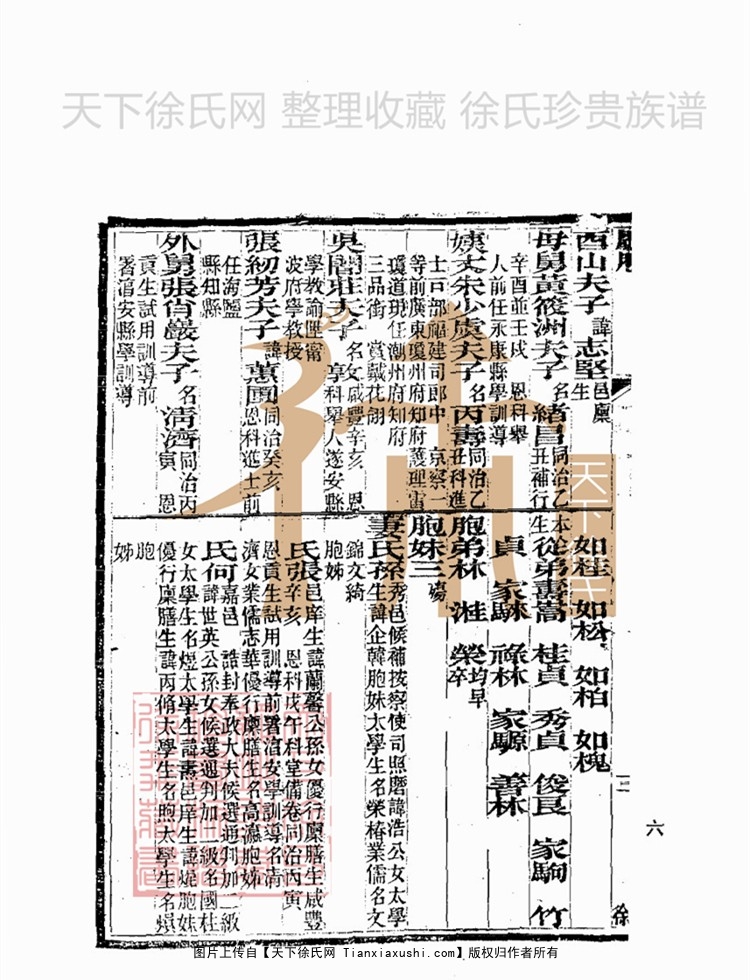 天下徐氏网 整理收藏 徐氏珍贵族谱
履歷
西山夫子 諱志堅 邑廩生
母舅黃筱洲夫子 名緒昌 同治乙丑補行
辛酉並壬戌 恩科舉
人前任永康縣學訓導
姨丈朱少虞夫子 名丙壽 同治乙丑科進
士刑部福建司郎中 京察一
等前廣東瓊州府知府護理雷
瓊道現任潮州府知府
三品銜 賞戴花翎
吳閬莊夫子 名文 咸豐辛亥 恩
科舉人遂安縣
學教諭
波府學教授
張紉芳夫子 諱蕙圃 同治癸亥
恩科進士前
任海鹽
縣知縣
外舅張肖嚴夫子 名清濟 同治丙寅 恩
貢生試用訓導前
署淯安縣學訓導
如桂 如松 如柏 如槐
本生從弟壽嵩 桂貞 秀貞 俊良 家駒 竹
貞 家騄 祿林 家驥 善林
胞弟林 溎 榮 均早卒
胞妹三 殤
妻氏孫 秀邑候補按察使司照磨諱浩公女太學
生諱企韓胞妹太學生名榮椿業儒名文
錦文綺
胞姊
氏張 邑庠生諱蘭馨公孫女優行廩膳生咸豐
辛亥 恩科戊午科堂備卷同治丙寅
恩貢生試用訓導前署淯安學訓導名清
濟女業儒志華優行廩膳生名高瀛胞姊
氏何 嘉邑 誥封奉政大夫候選通判加一級
諱世英公孫女候選通判加一級名國桂
女太學生名煜太學生諱燾邑庠生諱燒胞妹
優行廩膳生諱丙脩太學生名照太學生名熉
胞
姊
二
六
徐
天下徐氏
图片上传自【天下徐氏网 Tianxiaxushi.com】版权归作者所有